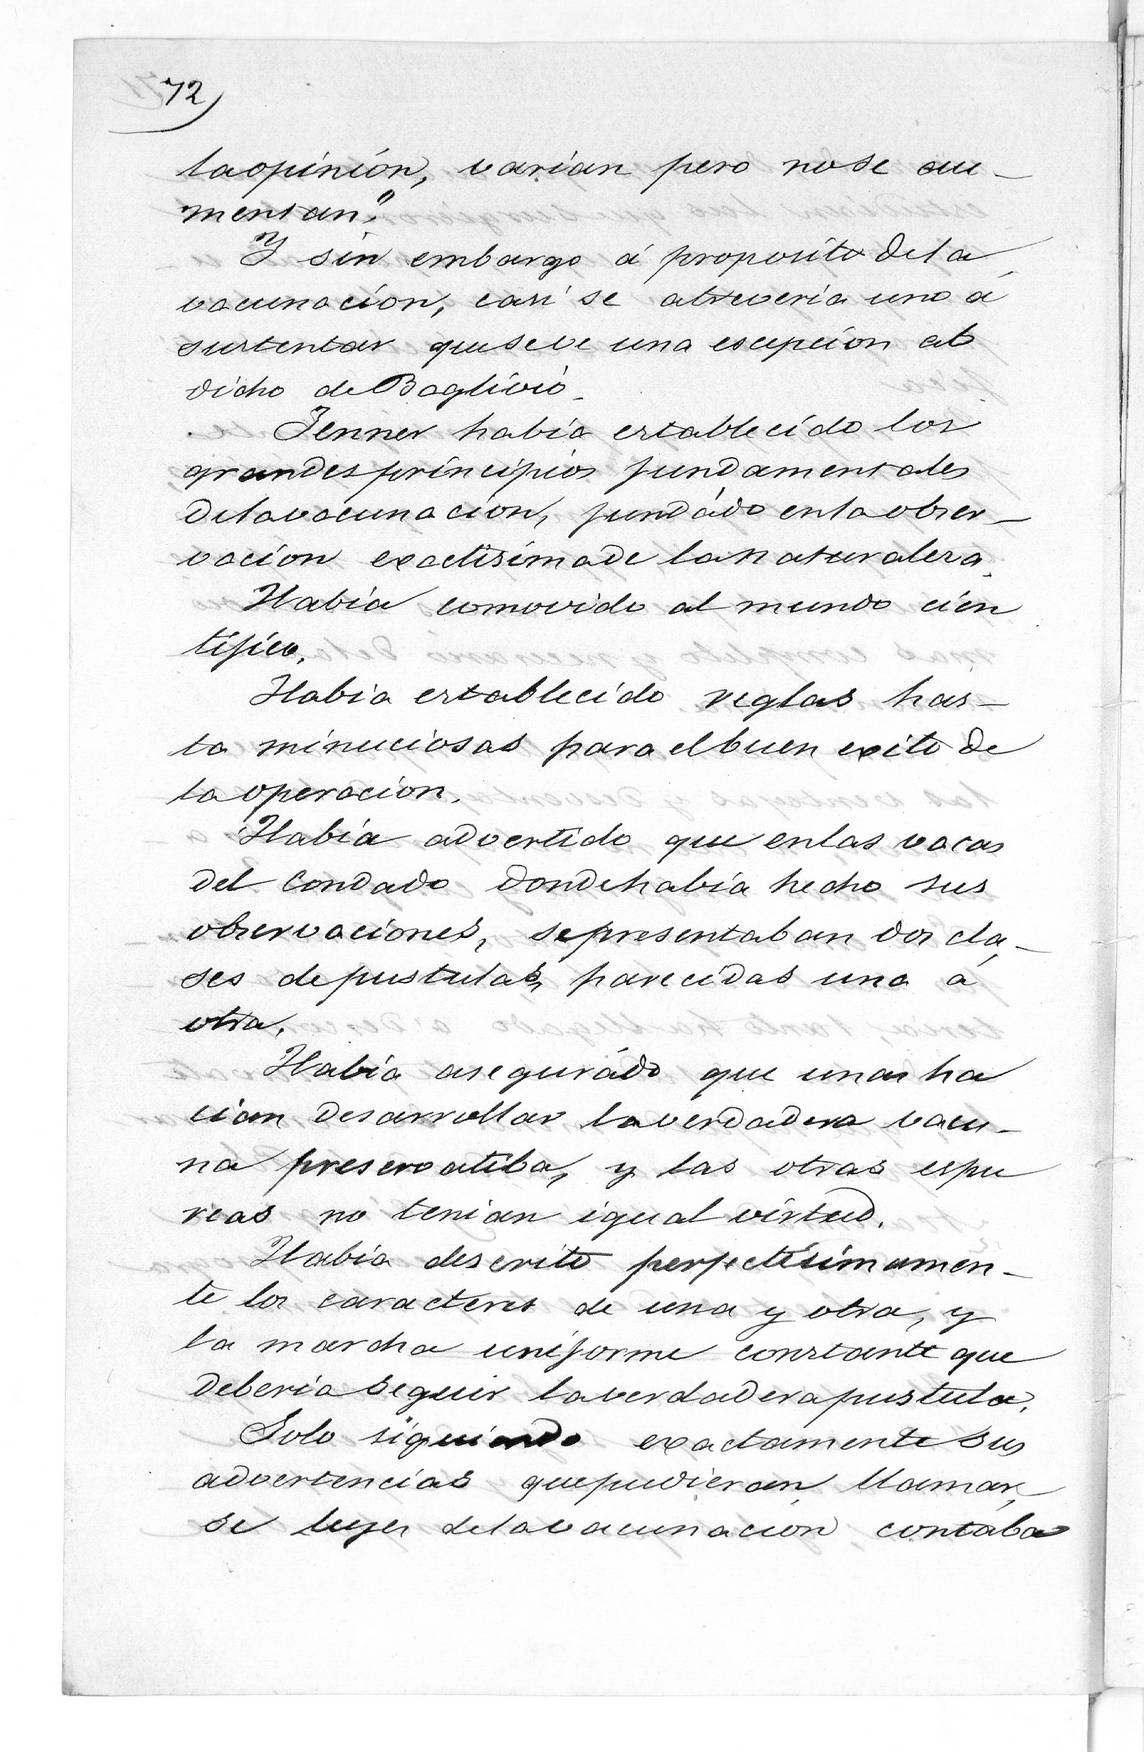 72
la opinión, varian pero no se au-
mentan."
Y sin embargo á proposito de la
vacunación, casi se atreveria uno á
sustentar que se ve una escepción al
dicho de Baglivio.
Jenner habia establecido los
grandes principios fundamentales
de la vacunacion, fundádo en la obser-
vación exactisima de la naturaleza.
Habia comovido al mundo cien
tifico.
Habia establecido reglas has-
ta minuciosas para el buen exito de
la operacion.
Habia advertido que en las vacas
del Condado donde habia hecho sus
observaciones, se presentaban dos cla-
ses de pustulas, parecidas una á
otra.
Habia asegurádo que unas ha
cian desarrollar la verdadera vacu-
na preservatiba, y las otras espu
reas no tenian igual virtud.
Habia descrito perfectisimamen-
te los caracteres de una y otra, y
la marcha uniforme constante que
deberia seguir la verdadera pustula.
Solo siguiendo exactamente sus
advertencias que pudieran llamar,
se leyes de la vacunación, contaba